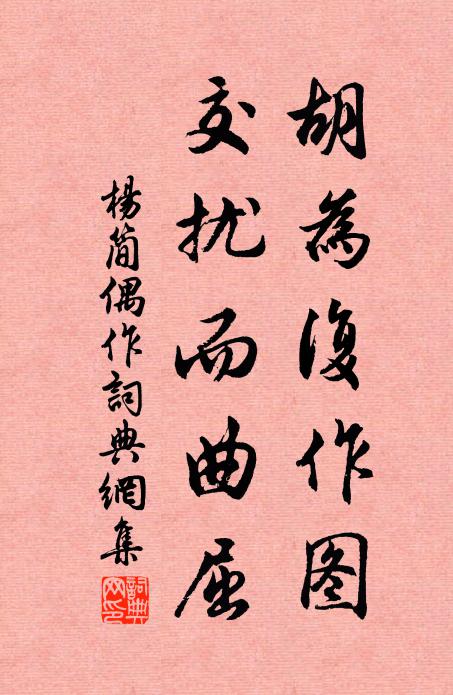 胡為復作图
交扰而曲屈
楊简偶作詞典網集
詞典网印